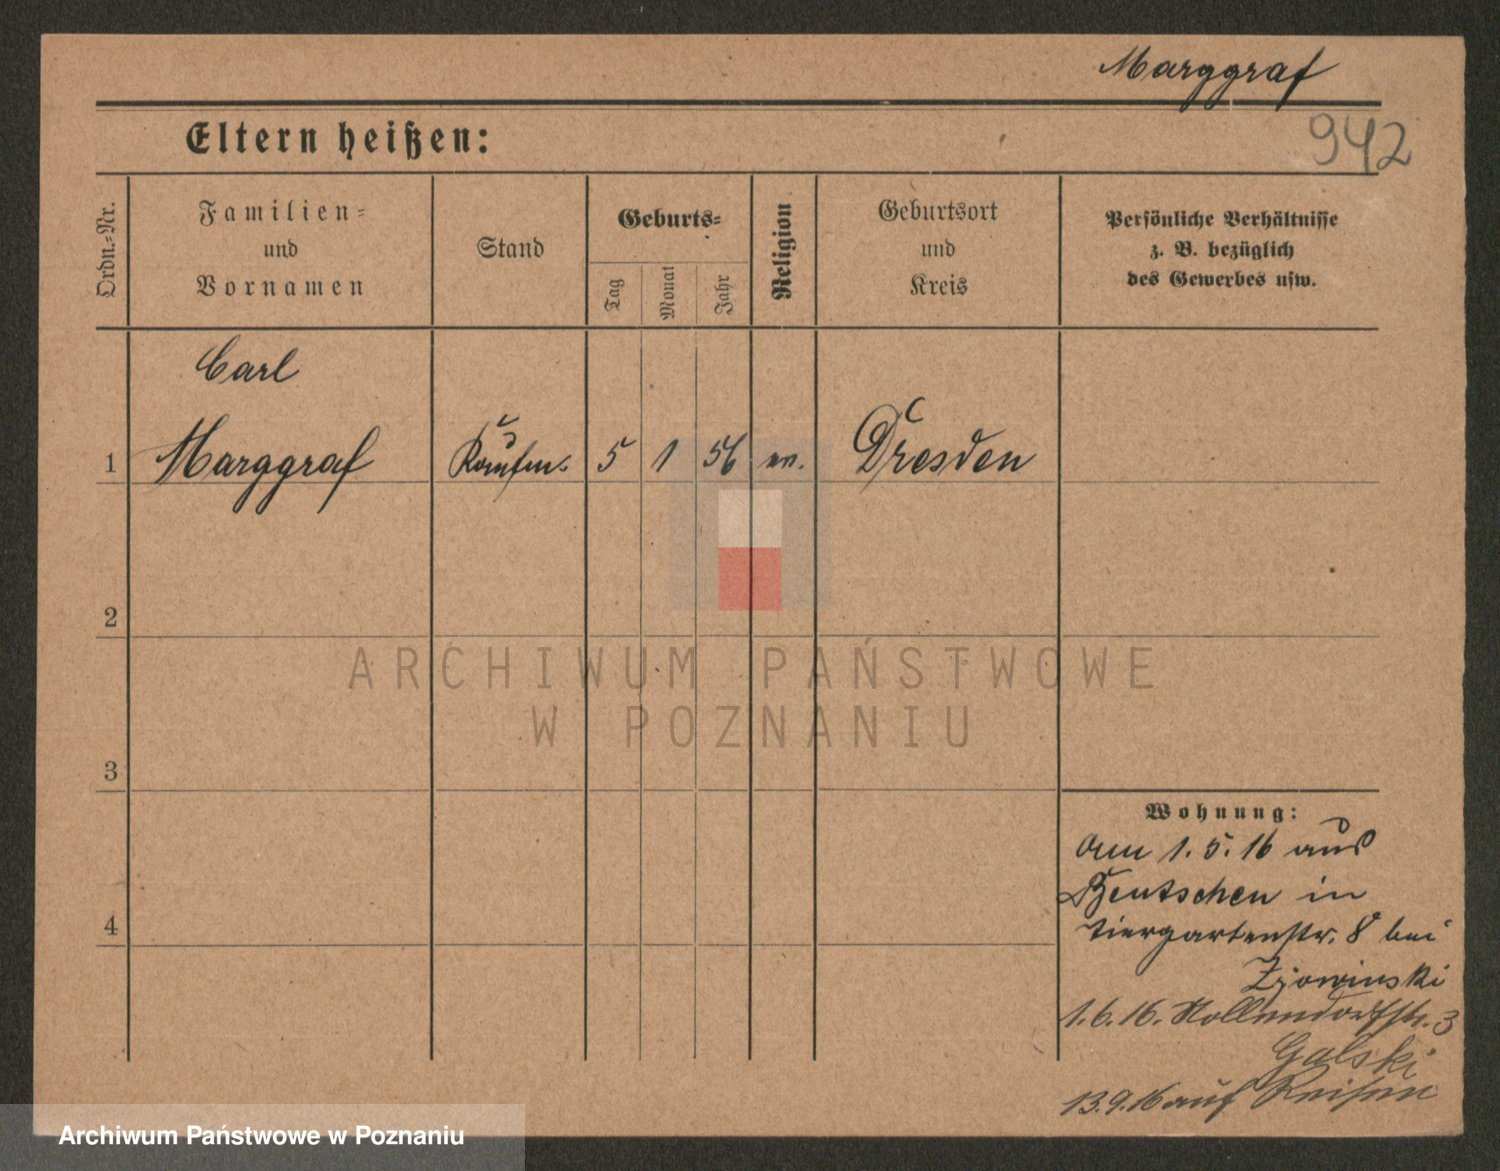 Marggraf
942
Eltern heißen:
Ordn.-Nr.
Familien-
und
Vornamen
Stand
Geburts-
Tag
Monat
Jahr
Religion
Geburtsort
und
Kreis
Persönliche Verhältnisse
z. B. bezüglich
des Gewerbes usw.
Carl
1 Marggraf Kaufm. 5 1 56 ev. Dresden
2
ARCHIWUM PAŃSTWOWE
W POZNANIU
3
Wohnung:
Am 1.5.16 aus
Bentschen in
4
Tiergartenstr. 8 bei
1.6.16. Nollendorfstr. 3
Galski
13.9.16 auf Reisen
Archiwum Państwowe w Poznaniu